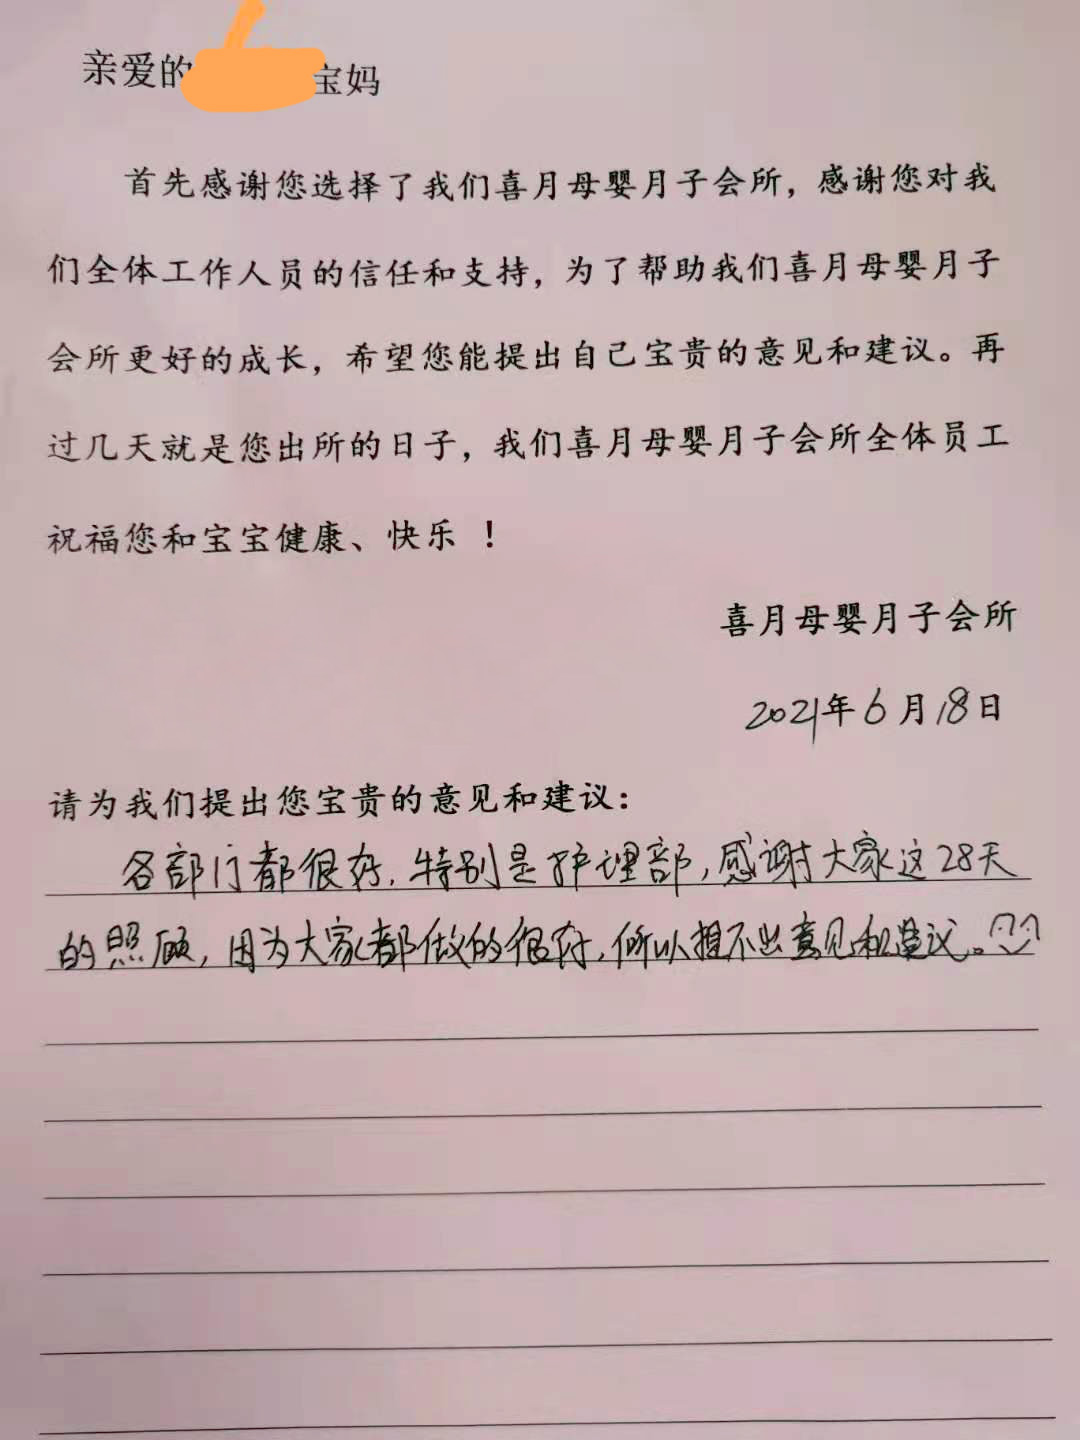 亲爱的 宝妈
首先感谢您选择了我们喜月母婴月子会所，感谢您对我
们全体工作人员的信任和支持，为了帮助我们喜月母婴月子
会所更好的成长，希望您能提出自己宝贵的意见和建议。再
过几天就是您出所的日子，我们喜月母婴月子会所全体员工
祝福您和宝宝健康、快乐 ！
喜月母婴月子会所
2021年6月18日
请为我们提出您宝贵的意见和建议：
各部门都很好，特别是护理部，感谢大家这28天
的照顾，因为大家都做的很好，所以提不出意见和建议。